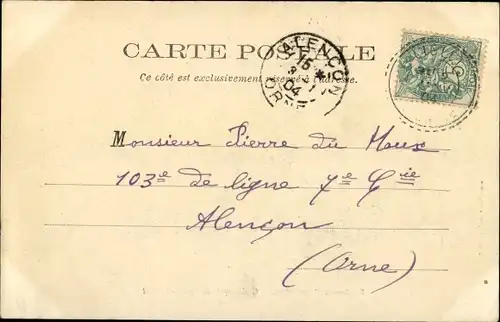 CARTE POSTALE
Ce côté est exclusivement réservé à l'adresse.
ALENÇON
15
04
ORNE
Monsieur Pierre du Maux
103e de ligne 7e Cie
Alençon
(Orne)